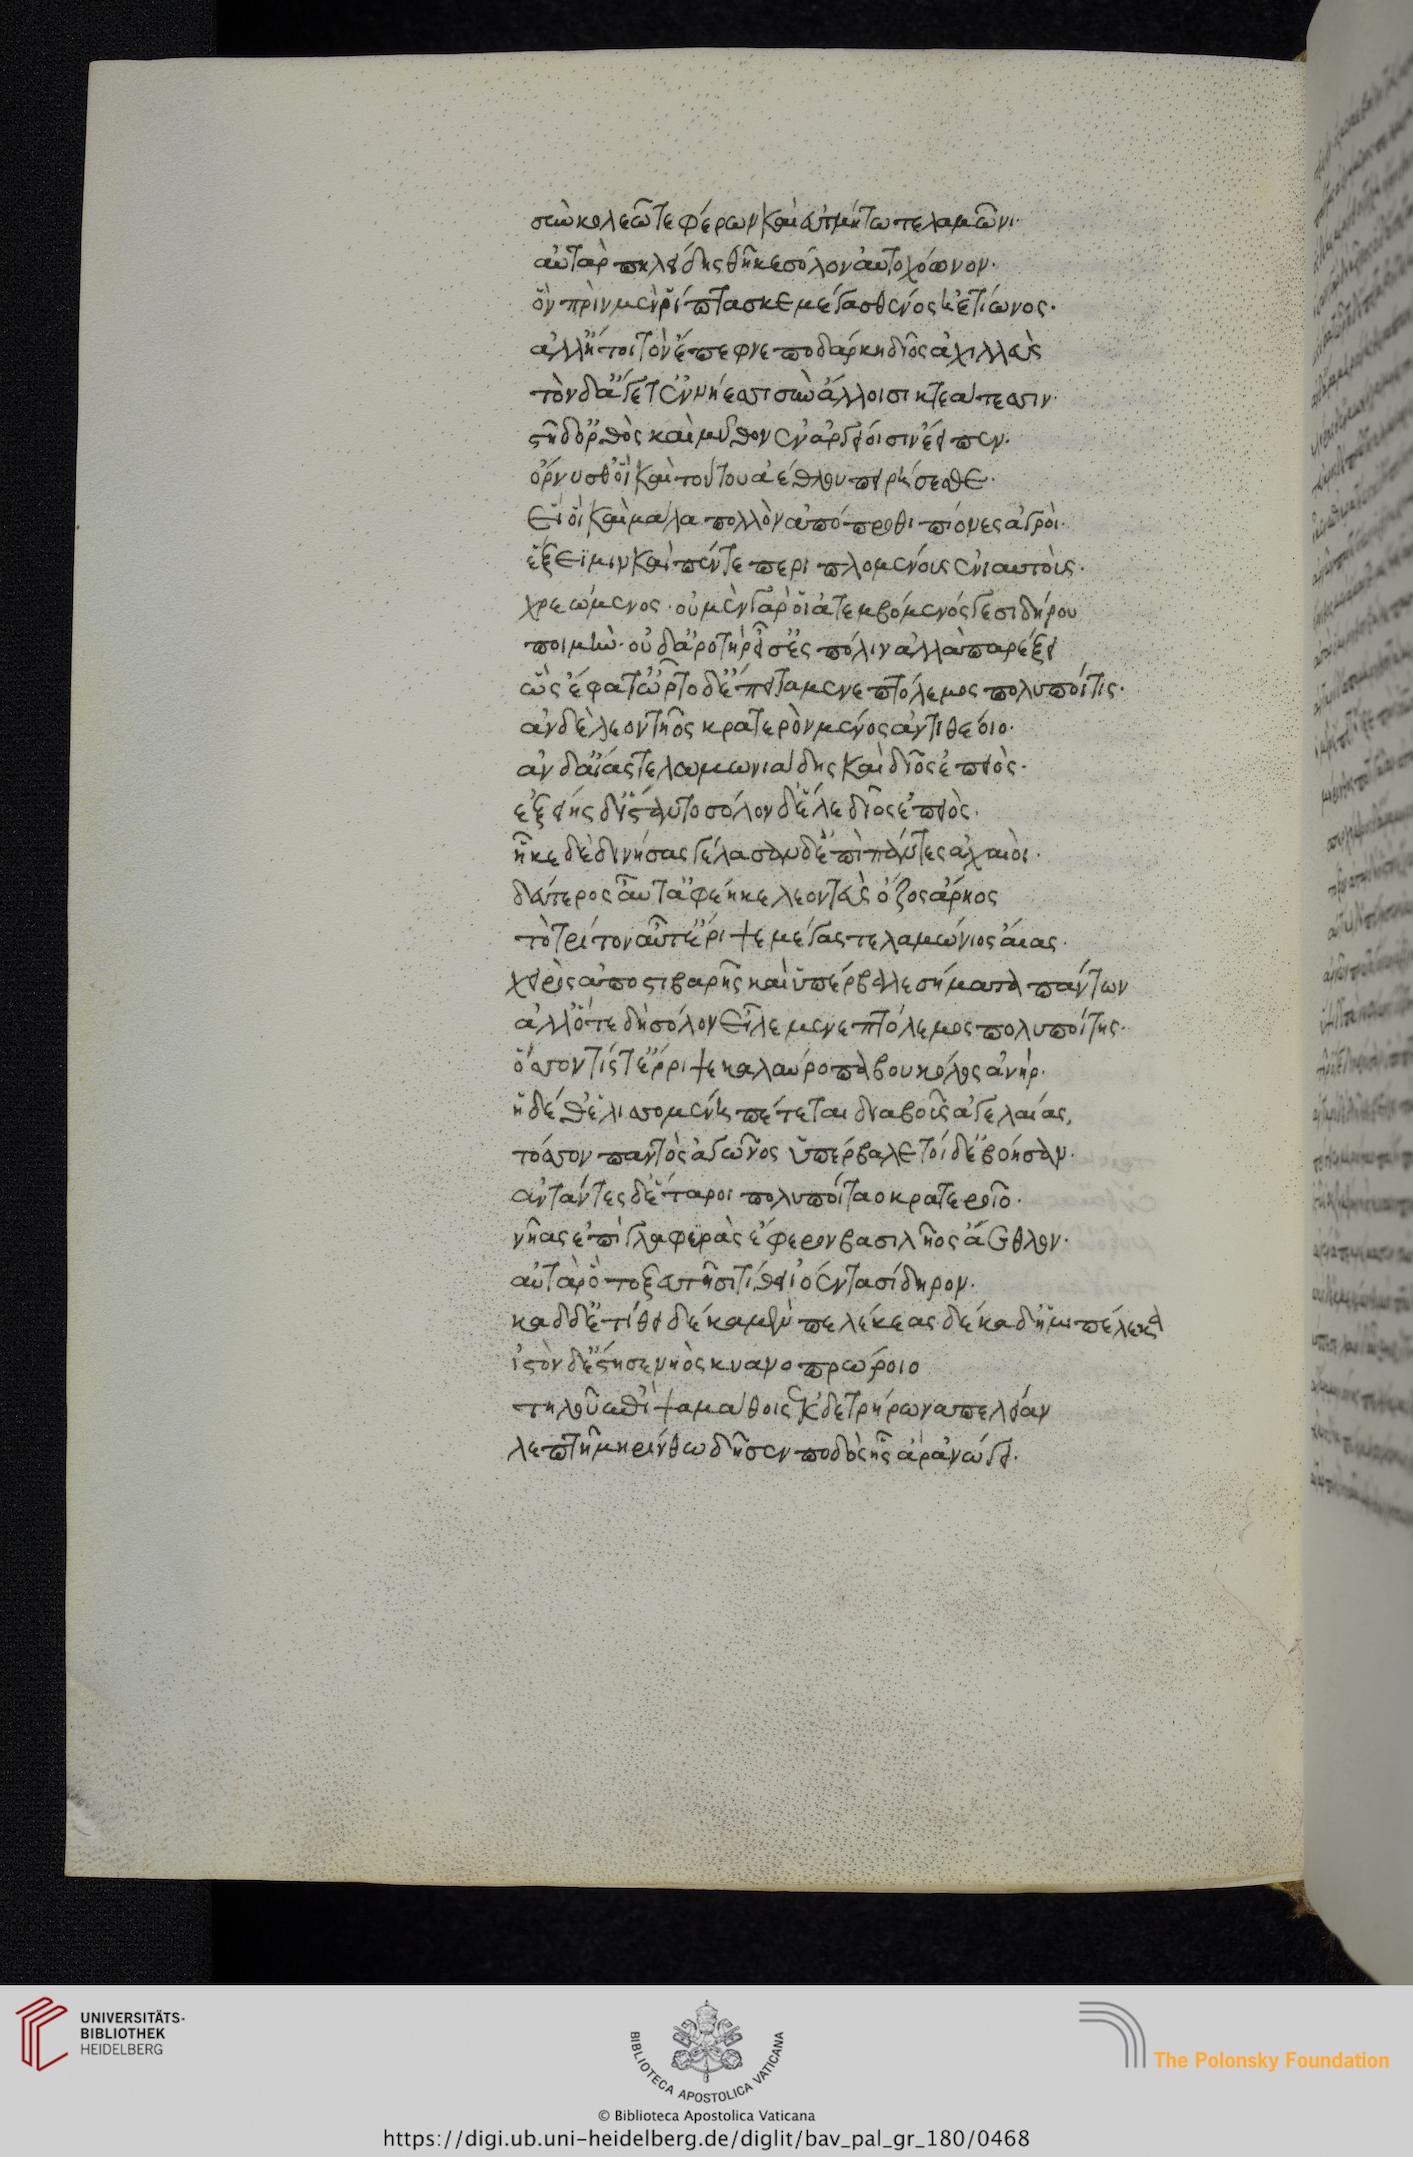 σὺν κολεῶ τε φέρων καὶ ἐϋτμήτω τελαμῶνι·
αὐτὰρ πηλείδης θῆκε σόλον αὐτοχόωνον·
ὃν πρὶν μὲν ῥίπτασκε μέγα σθένος ἠετίωνος·
ἀλλ' ἤτοι τὸν ἔπεφνε ποδάρκης δῖος ἀχιλλεὺς
τὸν δ' ἄγετ' ἐν νήεσσι σὺν ἄλλοισι κτεάτεσσιν·
στῆ δ' ὀρθὸς καὶ μῦθον ἐν ἀργείοισιν ἔειπεν·
ὄρνυσθ' οἳ καὶ τούτου ἀέθλου πειρήσεσθε·
εἴ οἱ καὶ μάλα πολλὸν ἀπόπροθι πίονες ἀγροὶ·
ἕξει μιν καὶ πέντε περιπλομένοις ἐνιαυτοῖς·
χρεώμενος· οὐ μὲν γάρ οἱ ἀτεμβόμενός γε σιδήρου
ποιμὴν· οὐδ' ἀροτὴρ εἶσ' ἐς πόλιν ἀλλὰ παρέξει
ὣς ἔφατ' ὦρτο δ' ἔπειτα μενεπτόλεμος πολυποίτις·
ἂν δὲ λεοντῆος κρατερὸν μένος ἀντιθέοιο·
ἂν δ' αἴας τελαμωνιάδης καὶ δῖος ἐπειὸς·
ἑξείης δ' ἵσταντο σόλον δ' ἕλε δῖος ἐπειὸς·
ἧκε δὲ δινήσας γέλασαν δ' ἐπὶ πάντες ἀχαιοὶ·
δεύτερος αὖτ' ἀφέηκε λεοντεὺς ὄζος ἄρηος
τὸ τρίτον αὖτ' ἔριψε μέγας τελαμώνιος αἴας·
χειρὸς ἀπο στιβαρῆς καὶ ὑπέρβαλε σήματα πάντων
ἀλλ' ὅτε δὴ σόλον εἷλε μενεπτόλεμος πολυποίτης·
ὅσσον τίς τ' ἔρριψε καλαύροπα βουκόλος ἀνὴρ·
ἡ δέ θ' ἑλισσομένη πέτεται διὰ βοῦς ἀγελαίας,
τόσσον παντὸς ἀγῶνος ὑπέρβαλε τοὶ δ' ἐβόησαν·
ἀνστάντες δ' ἕταροι πολυποίταο κρατεροῖο·
νῆας ἐπὶ γλαφυρὰς ἔφερον βασιλῆος ἄεθλον·
αὐτὰρ ὃ τοξευτῆσι τίθει ἰόεντα σίδηρον·
καδδ' ἐτίθει δέκα μὲν πελέκεας δέκα δ' ἡμιπέλεκα
ἱστὸν δ' ἔστησε νηὸς κυανοπρώροιο
τηλοῦ ἐπὶ ψαμάθοις ἐκ δὲ τρήρωνα πέλειαν
λεπτῆ μηρίνθω δῆσεν ποδὸς ἧς ἄρ' ἀνώγει·
UNIVERSITÄTS-
BIBLIOTHEK
HEIDELBERG
BIBLIOTECA APOSTOLICA VATICANA
The Polonsky Foundation
© Biblioteca Apostolica Vaticana
https://digi.ub.uni-heidelberg.de/diglit/bav_pal_gr_180/0468